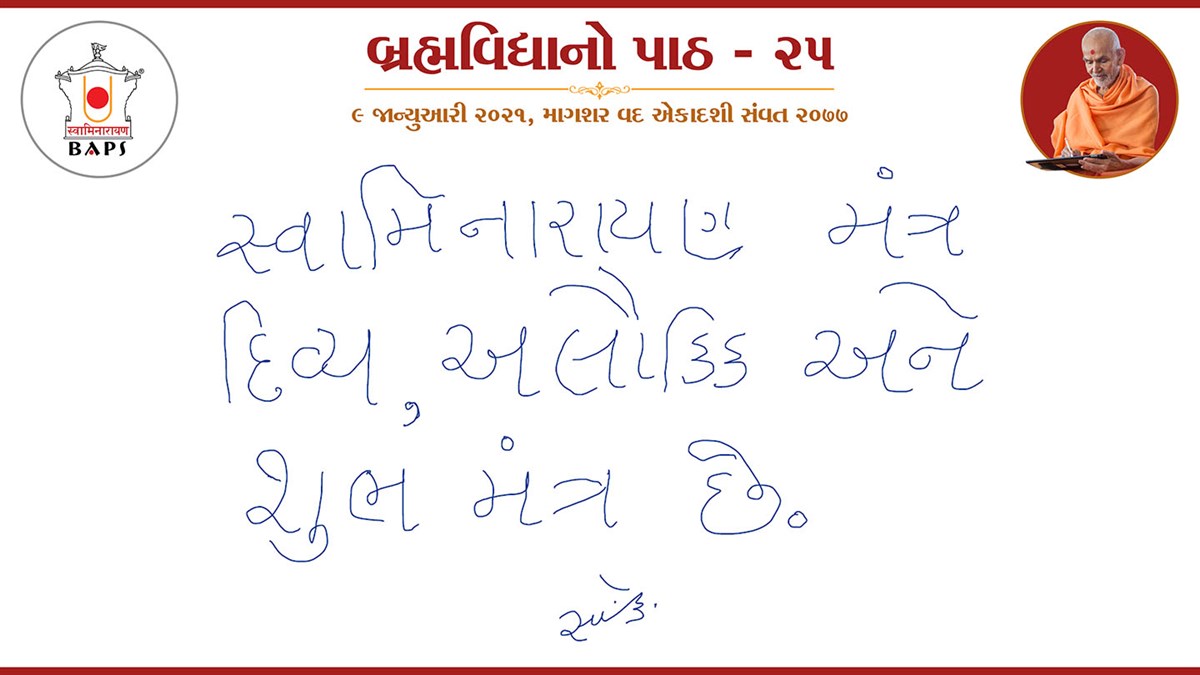 બ્રહ્મવિદ્યાનો પાઠ - ૨૫
૯ જાન્યુઆરી ૨૦૨૧, માગશર વદ એકાદશી સંવત ૨૦૭૭
स्वामिनारायण
BAPS
સ્વામિનારાયણ મંત્ર
દિવ્ય, અલૌકિક અને
શુભ મંત્ર છે.